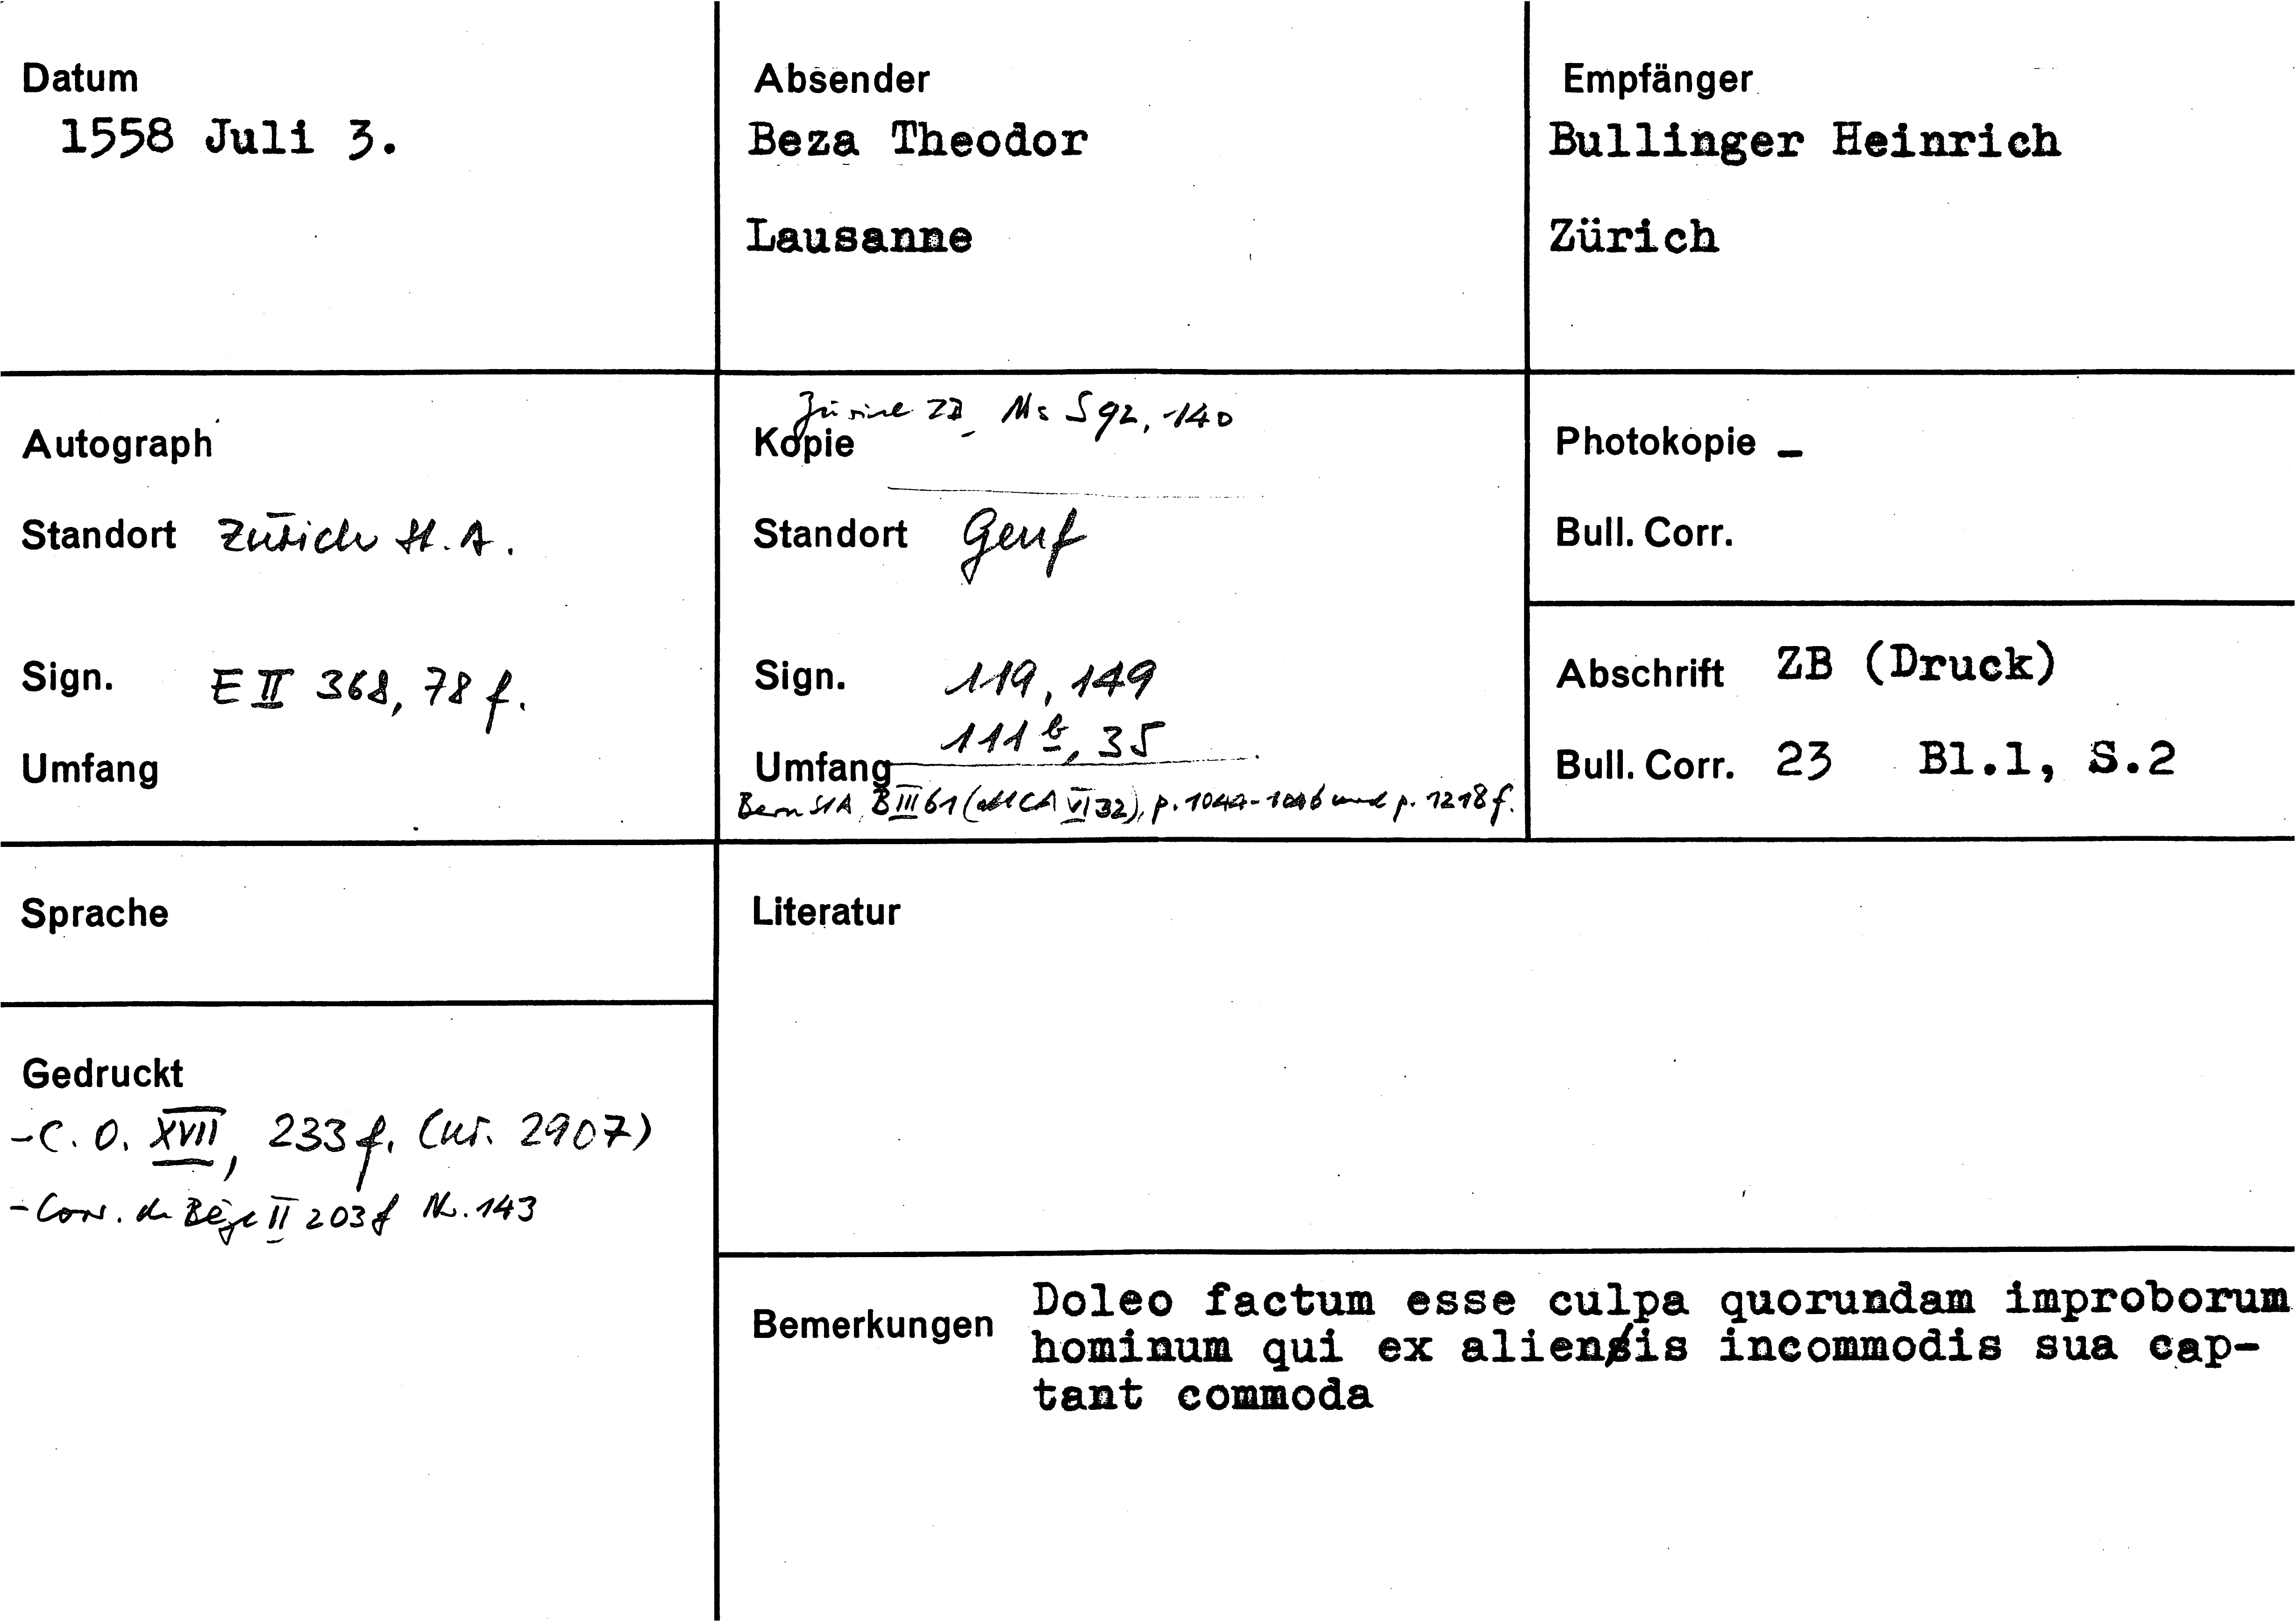 Datum
1558 Juli 3.
Absender
Beza Theodor
Lausanne
Empfänger
Bullinger Heinrich
Zürich
Autograph
Standort Zürich St. A.
Sign. E II 368, 78 f.
Umfang
Zürich ZB Ms S 92, 140
Kopie
Standort Genf
Sign. 119, 149
111 b, 35
Umfang
Bern StA, B III 61 (alt CA VI 32), p. und p. 1218 f.
Photokopie –
Bull. Corr.
Abschrift ZB (Druck)
Bull. Corr. 23 Bl.1, S.2
Sprache
Gedruckt
- C. O. XVII, 233 f. (nr. 2907)
- Corr. de Bèze II 203 f Nr. 143
Literatur
Bemerkungen Doleo factum esse culpa quorundam improborum
hominum qui ex alienis incommodis sua cap-
tant commoda